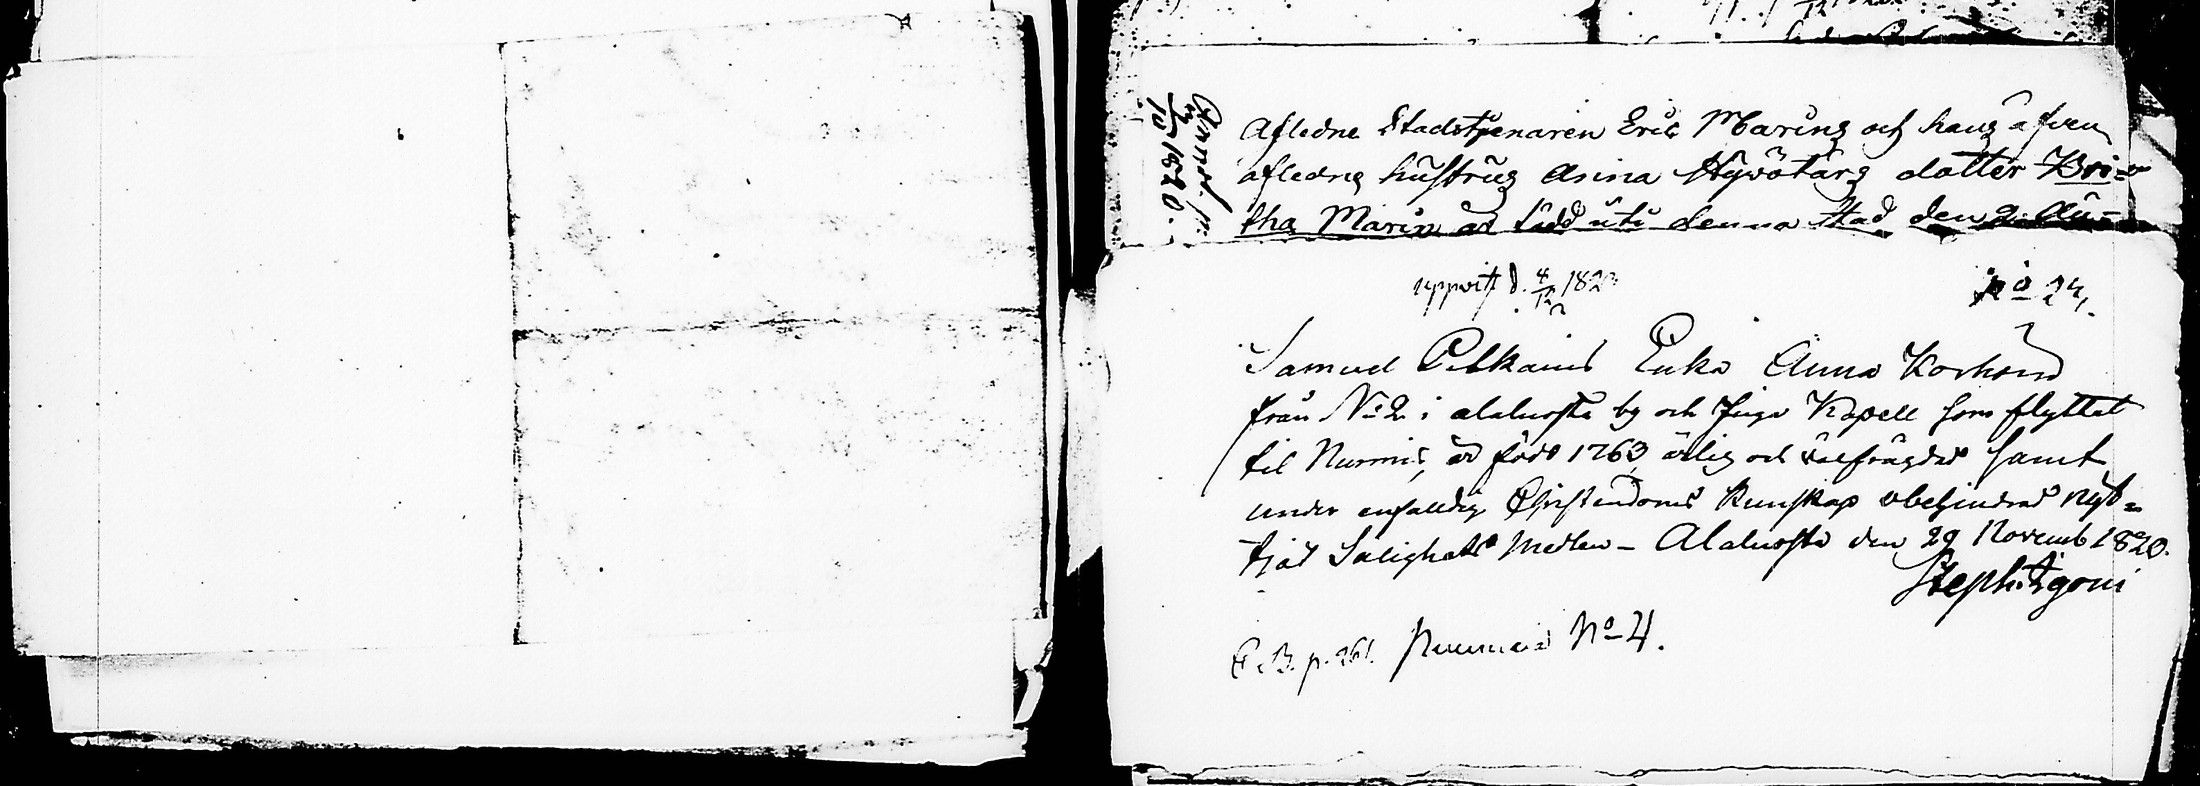 Afledne Stadstjenaren Eric Maring och hans äfven
afledng hustrug Anna Hyvötärg dotter Bri=
tha Marin är född uti denna Stad den 2. Au-
uppvist d. 4/12 1820
No 24.
Samuel Pitkains Enka Anna Korhoin
från No 2 i alaluosta by och Juga Kapell som flyttat
til Nurmis, är född 1763, ärlig och välfrägdad samt
under enfaldig Christendoms kunskap obehindrad nyt=
tjat Salighets Medlen - Alaluosta den 29 Novemb 1820.
Steph:
C. B. p. 261. Nurmis No 4.